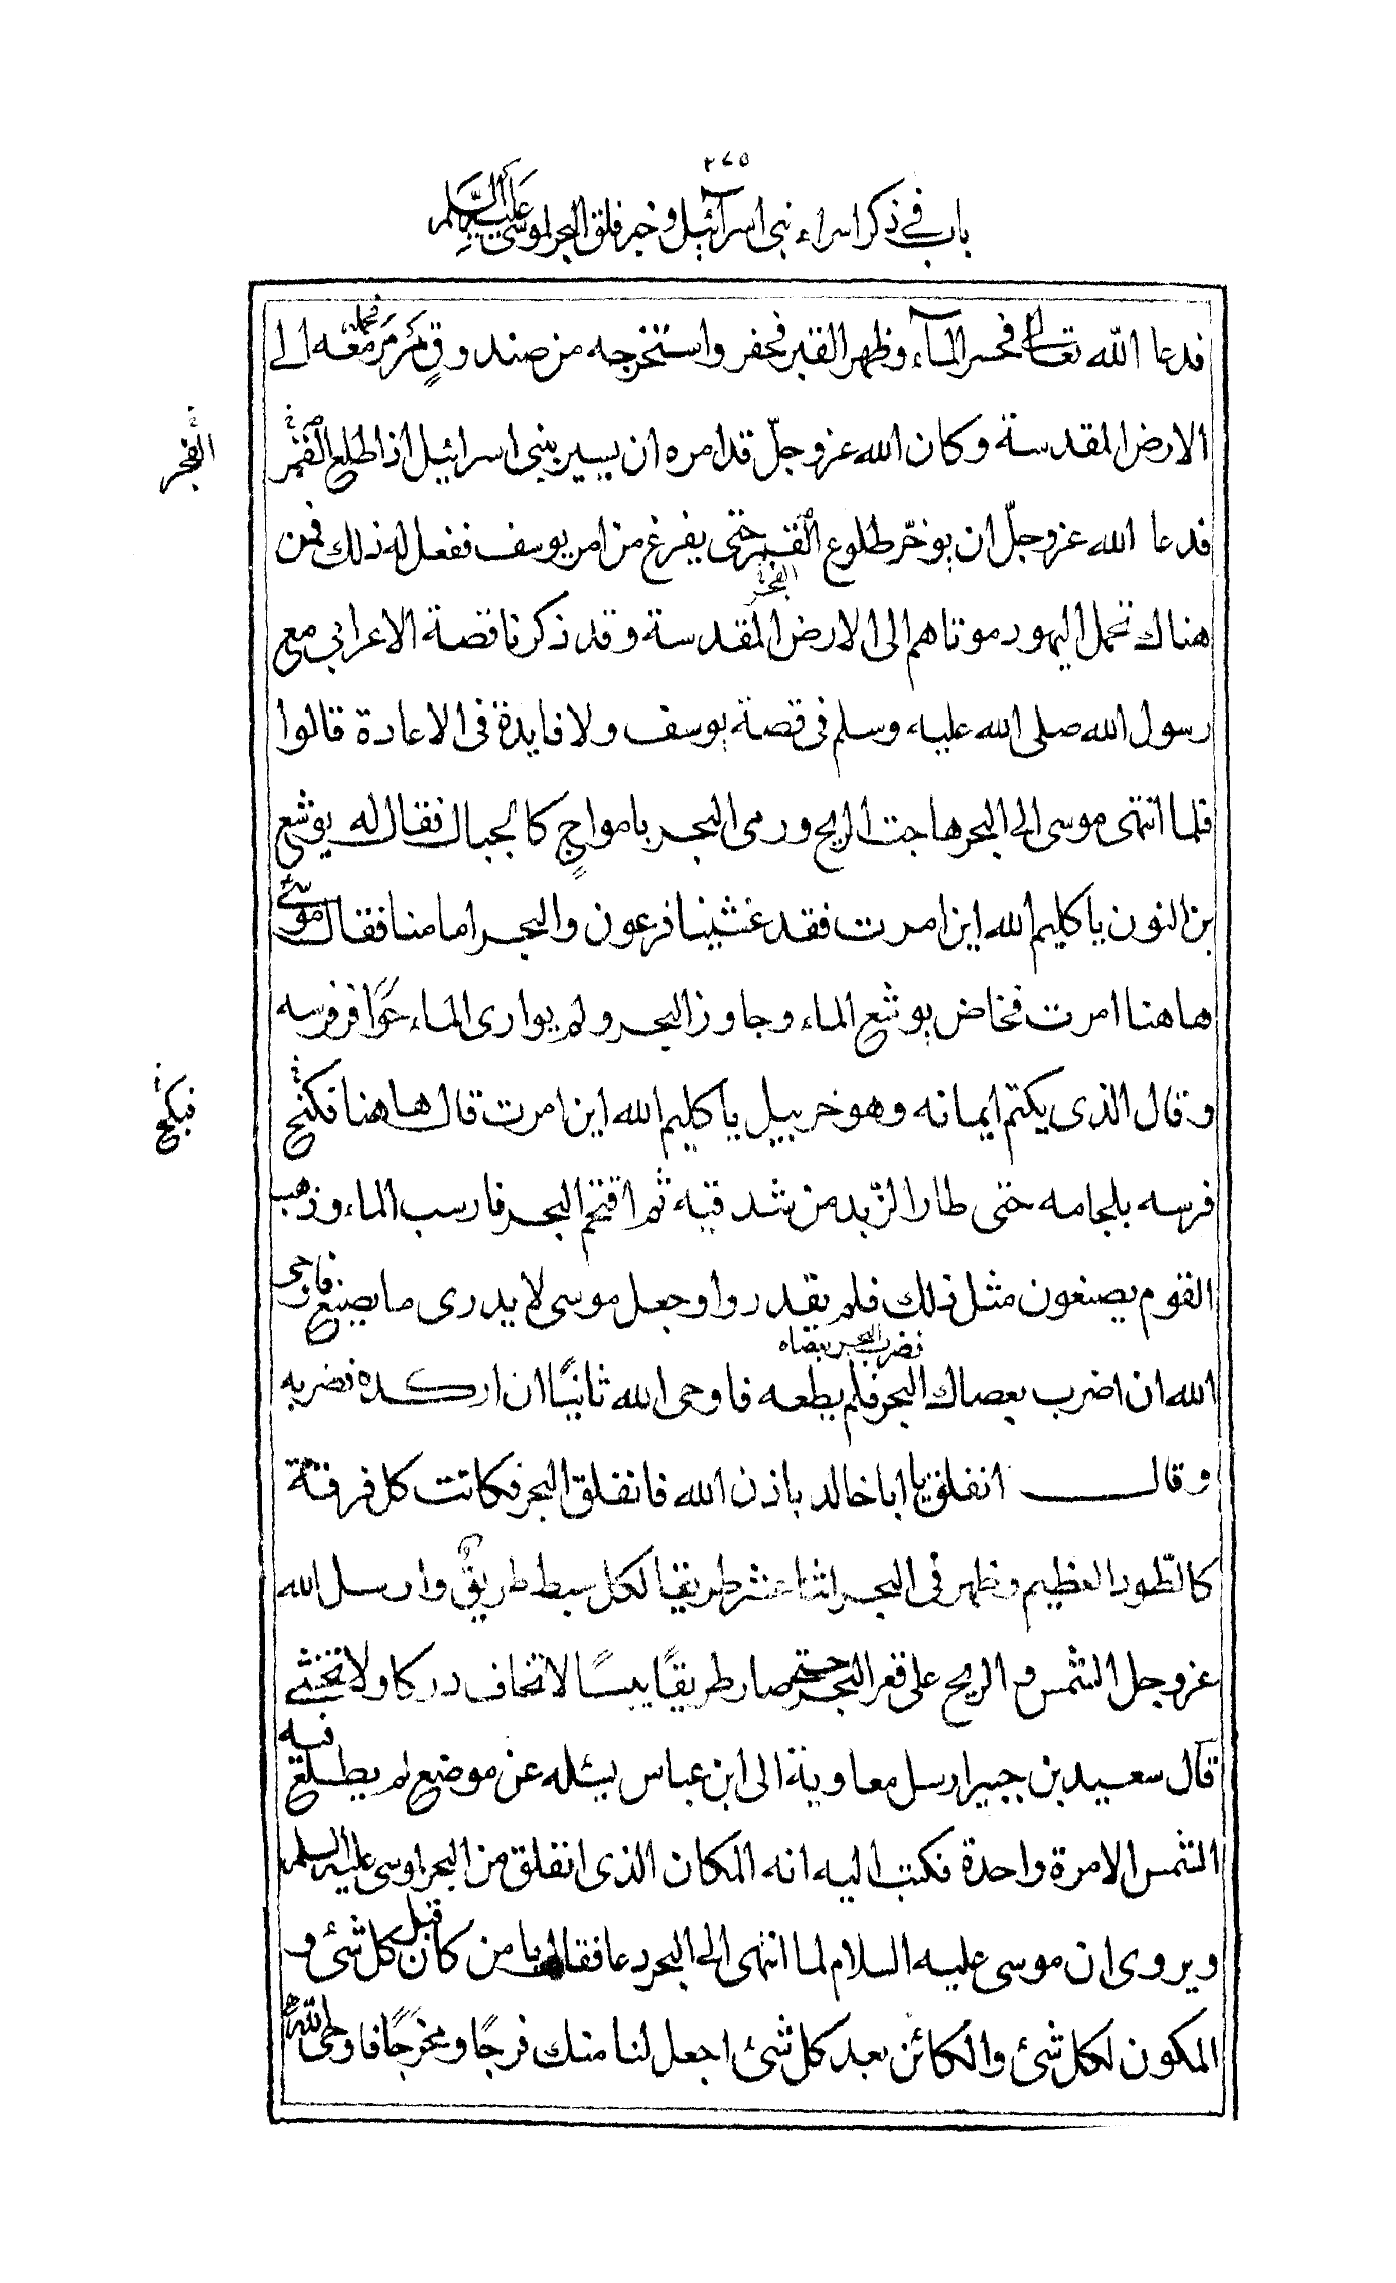 ٢٧٥
باب في ذكر اسراء بنى اسرآئيل وخبر فلق البحر لموسى عليه السلم
فدعا الله تعالى فحسر المآء وظهر القبر فحفر واستخرجه من صندوقٍ مَرمَر فحمله معه الى
الارض المقدسة وكان الله عزوجلّ قد امره ان يسير ببنى اسرائيل اذا طلع القمر
الفجر
فدعا الله عزوجلّ ان يوخّر طلوع القمر حتى يفرغ من امر يوسف ففعل له ذلك فمن
الفجر
هناك تحمل اليهود موتاهم الى الارض المقدسة وقد ذكرنا قصة الاعرابي مع
رسول الله صلى الله عليه وسلم فى قصة يوسف ولا فايدة فى الاعادة قالوا
فلما انتهى موسى الى البحر هاجت الريح ورمى البحر بامواجٍ كالجبال فقال له يوشع
بن النون يا كليم الله اين امرت فقد غشينا فرعون والبحر امامنا فقال موسى
هاهنا امرت فخاض يوشع الماء وجاوز البحر ولم يوارى الماء حوافر فرسه
وقال الذى يكتم ايمانه وهو خربيل يا كليم الله اين امرت قال هاهنا فكبح
فبكح
فرسه بلجامه حتى طار الزّبد من شدقيه ثم اقتحم البحر فارسب الماء وذهب
القوم يصنعون مثل ذلك فلم يقدروا وجعل موسى لا يدرى ما يصنع فاوحى
فضرب البحر بعصاه
الله ان اضرب بعصاك البحر فلم يطعه فاوحى الله ثانيًا ان اركده فضربه
وقال انفلق يا ابا خالد باذن الله فانفلق البحر فكانت كل فرقة
كالطّود العظيم وظهر فى البحر اثنا عشر طريقا لكل سبط طريقٌ وارسل الله
عزوجل الشمس والريح على قعر البحر حتى صار طريقًا يبسًا لا تخاف دركا ولا تخشى
قال سعيد بن جبير ارسل معاوية الى ابن عباس يسئله عن موضع لم يطلع فيه
الشمس الا مرة واحدة فكتب اليه انه المكان الذى انفلق من البحر لموسى عليه السلم
ويروى ان موسى عليه السلام لما انتهى الى البحر دعا فقال يا من كان قبل كل شئ و
المكون لكل شئ والكائن بعد كل شئ اجعل لنا منك فرجًا ومخرجًا فاوحى الله